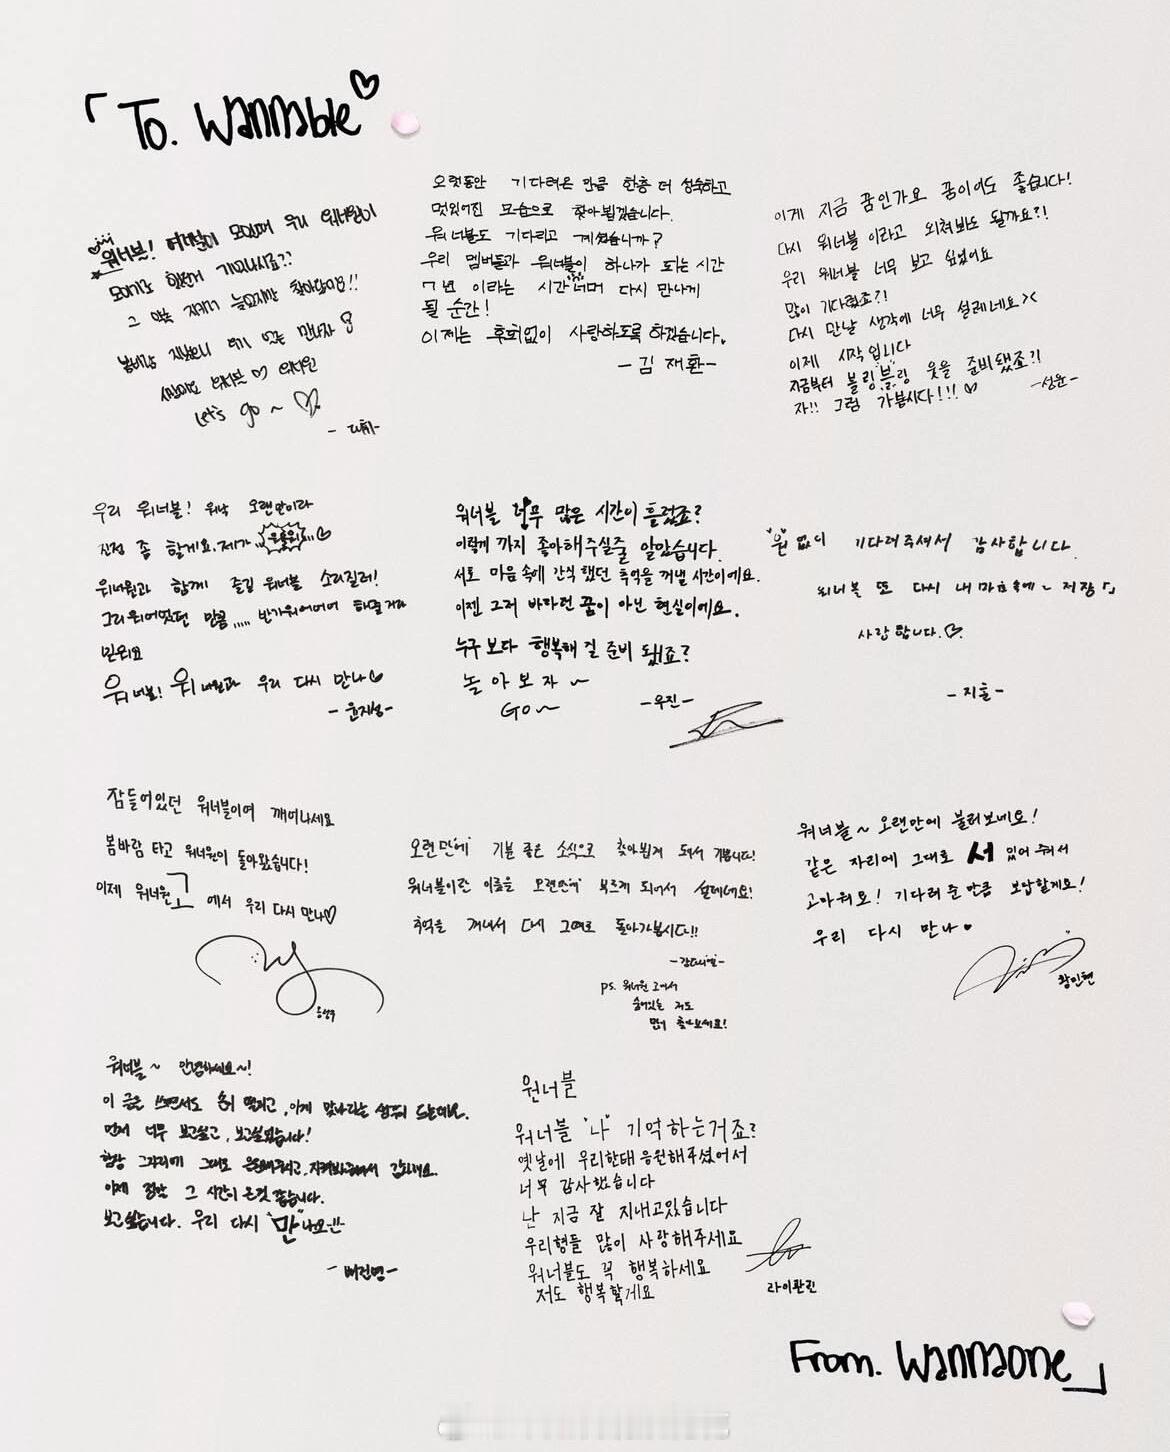 「To. Wannable♡
워너블! 여러분이 모여서 우리 워너원이
그 약속 지키기 늦었지만 찾아왔어요!!
Let's go~ ♡
-대휘-
오랫동안 기다려온 만큼 한층 더 성숙하고
멋있어진 모습으로 찾아뵙겠습니다.
워너블도 기다리고 계셨습니까?
우리 멤버들과 워너블이 하나가 되는 시간
7년 이라는 시간 너머 다시 만나게
될 순간!
이제는 후회없이 사랑하도록 하겠습니다.
-김재환-
이게 지금 꿈인가요 꿈이어도 좋습니다!
다시 워너블 이라고 외쳐봐도 될까요?!
우리 워너블 너무 보고 싶었어요
많이 기다렸죠?!
다시 만날 생각에 너무 설레네요><
이제 시작입니다
지금부터 블링블링 웃을 준비됐죠?!
자!! 그럼 가봅시다!!!♡
-성운-
우리 워너블! 워낙 오랜만이라
진정 좀 할게요. 제가
워너원과 함께 즐길 워너블 소리질러!
그리워했던 만큼..... 반가워어어어 해줄거라
믿어요
워너블! 워너원과 우리 다시 만나♡
-윤지성-
워너블 너무 많은 시간이 흘렀죠?
이렇게 까지 좋아해주실줄 알았습니다.
서로 마음속에 간직했던 추억을 꺼낼 시간이에요.
이젠 그저 바라던 꿈이 아닌 현실이에요.
누구보다 행복해 질 준비 됐죠?
놀아보자~
GO~
-우진-
"원"없이 기다려주셔서 감사합니다.
워너블 또 다시 내 마음속에~ 저장
사랑합니다.♡
-지훈-
잠들어있던 워너블이여 깨어나세요
봄바람 타고 워너원이 돌아왔습니다!
이제 워너원고에서 우리 다시 만나♡
옹성우
오랜만에 기분 좋은 소식으로 찾아뵙게 돼서 기쁩니다!
워너블이란 이름을 오랜만에 부르게 되어서 설레네요!
추억을 꺼내서 다시 그때로 돌아가봅시다!!
-강다니엘-
ps. 워너원 고에서
숨어있는 저도
많이 찾아보세요!
워너블~ 오랜만에 불러보네요!
같은 자리에 그대로 서 있어 줘서
고마워요! 기다려 준 만큼 보답할게요!
우리 다시 만나♥
황민현
워너블~ 안녕하세요~!
이 글을 쓰면서도 손이 떨리고, 이게 맞나라는 생각이 드는데요.
먼저 너무 보고싶고, 보고싶었습니다!
항상 그자리에 그대로 응원해주시고, 지켜봐주셔서 감사해요.
이제 정말 그 시간이 온것 같습니다.
보고싶습니다. 우리 다시 "만"나요!!
-배진영-
원너블
워너블 "나" 기억하는거죠?
옛날에 우리한태 응원해주셨어서
너무 감사했습니다
난 지금 잘 지내고있습니다
우리형들 많이 사랑해주세요
워너블도 꼭 행복하세요
저도 행복할게요
라이관린
From. Wannaone」